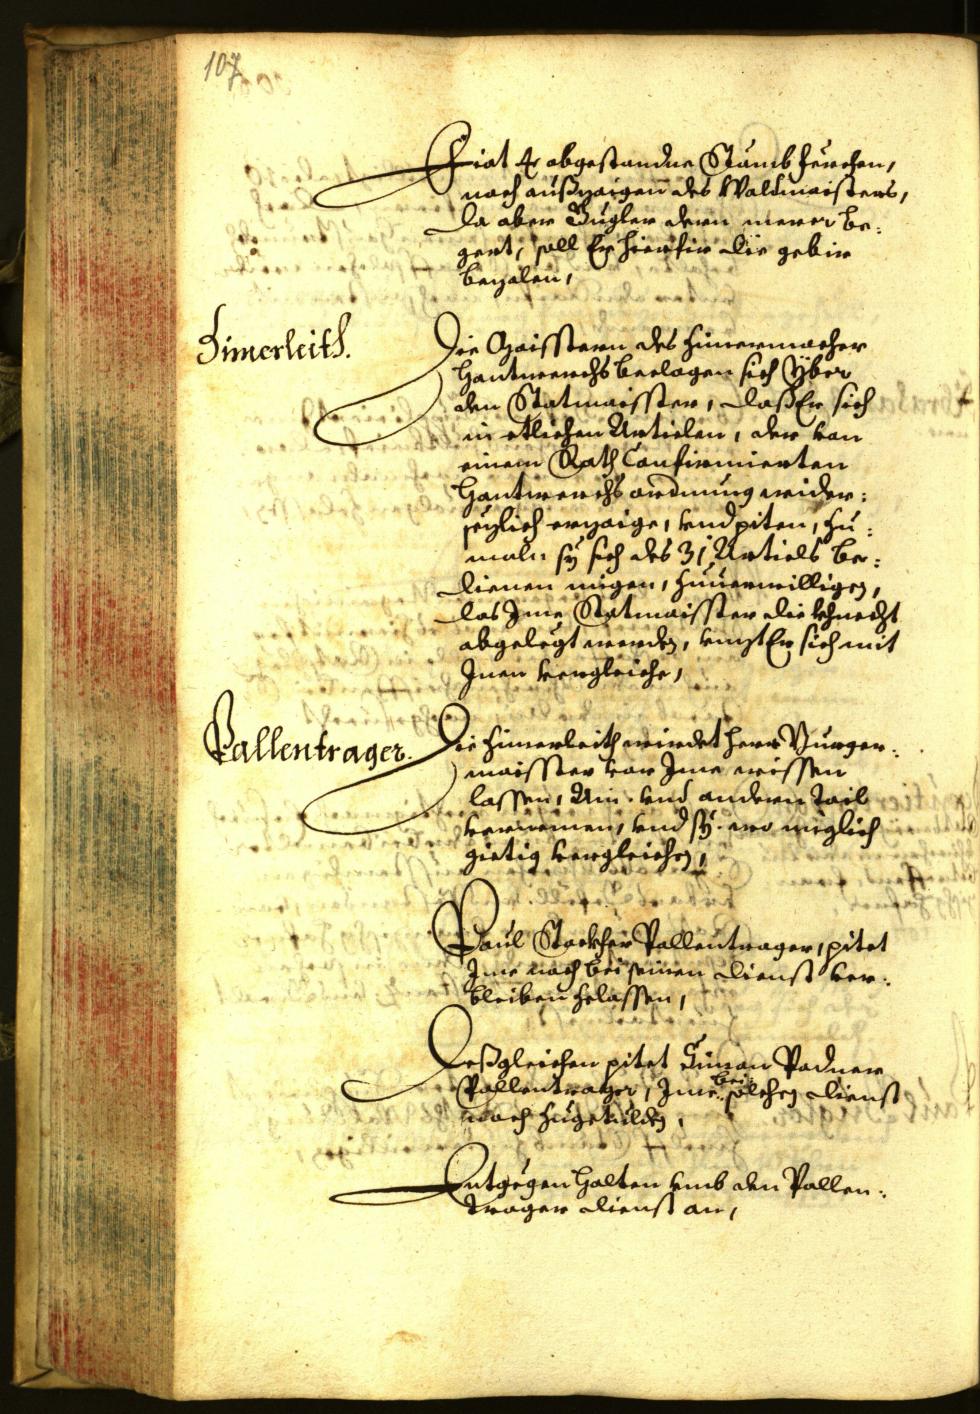 107
Fiat 4 abgestandne Stämb ferchen,
nach außzaigen des Waldmaisters,
da aber Kugler deren merer be:
gert, soll Er hierfir die gebir
bezalen,
Zimerleith.
Die Maisstern des Zimermacher
Hantwerchs beclagen sich yber
den Statmaisster, daß Er sich
in etlichen Articlen, der von
einem Rath Confirmierten
Hantwerchs ordnung wider:
sezlich erzaige, vnd piten, zu:
maln sÿ sich des 31 Articls be:
dienen migen, zuuerwilligen,
das Ime Statmaisster die khnecht
abgelegt werden, vnzt Er sich mit
Inen vergleiche,
Pallentrager.
Die Zimerleith wirdet herr Burger:
maisster vor Ime erissen
lassen, Ain vnd andern Tail
vernemen, vnd sÿ wo miglich
gietig vergleichen,
Paul Stockher Pallentrager, pitet
Ime noch bei seinen dienst ver:
bleiben zelassen,
Deßgleichen pitet Simon Padner
Pallentrager, Ime bei solchen dienst
noch zugedulden,
Entgegen halten vmb den Pallen:
trager dienst an,